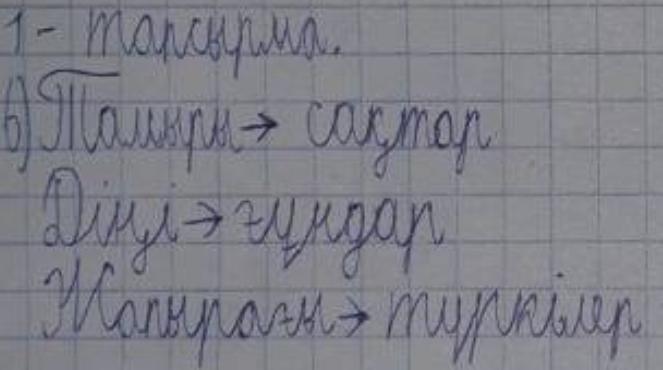 1- тапсырма.
в) Тамыры → сақтар
Діңі → ғұндар
Жапырағы → түркілер